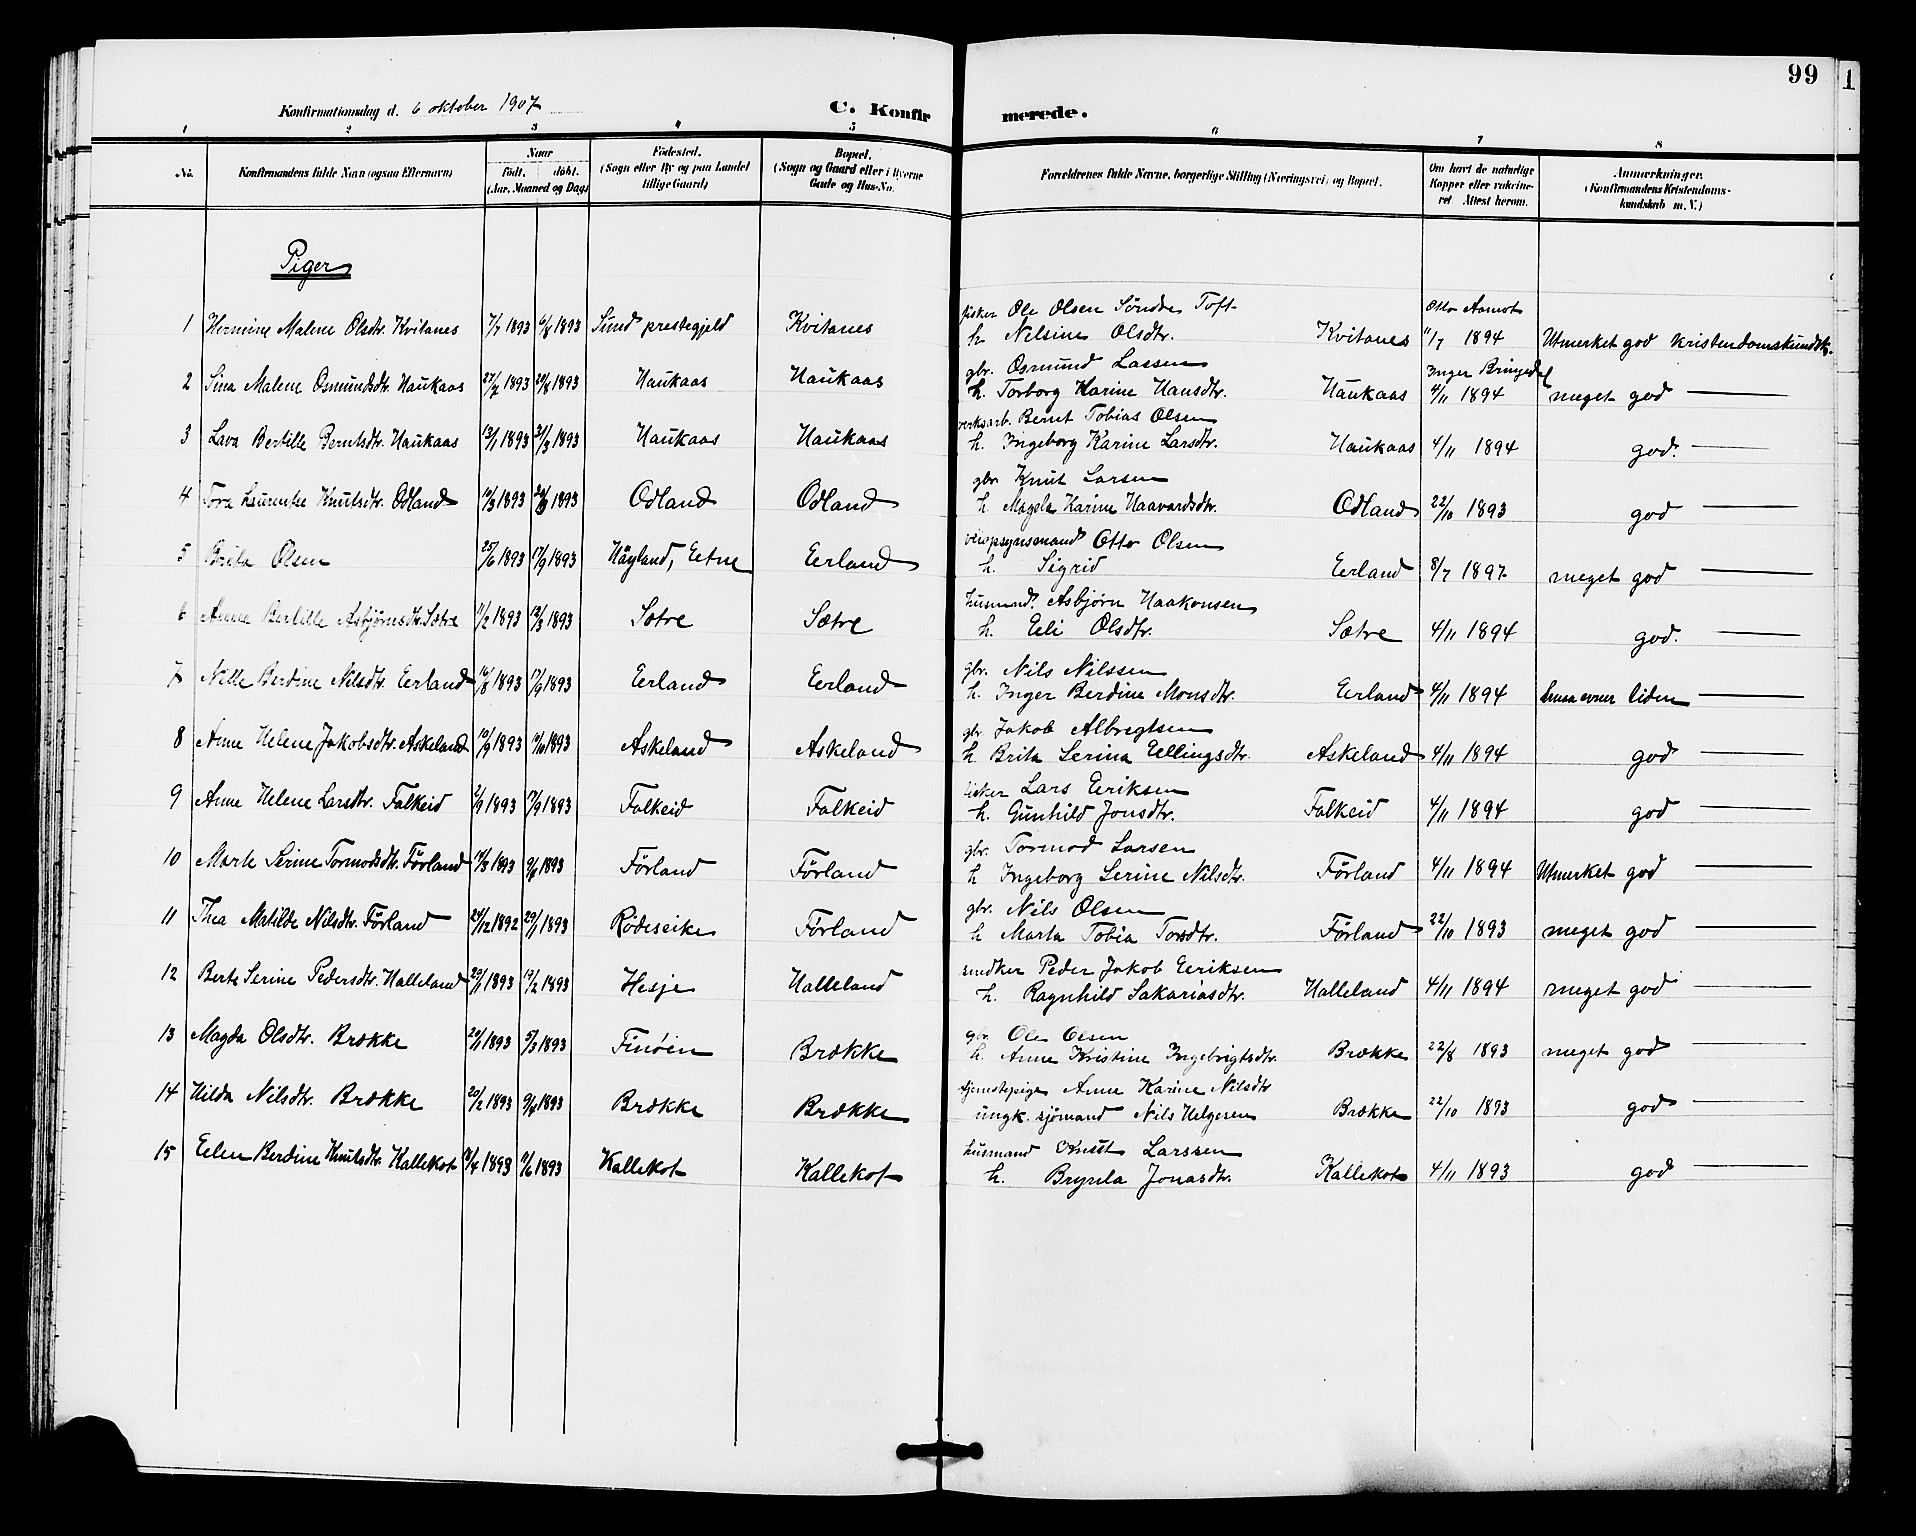 99
Konfirmationsdag d. 6 oktober 1907
C. Konfirmerede.
1 2 3 4 5 6 7 8
No. Konfirmandens fulde Navn (ogsaa Efternavn) Naar født. døbt. (Aar, Maaned og Dag) Fødested. (Sogn eller By og paa Landet tillige Gaard) Bopæl. (Sogn og Gaard eller i Byerne Gade og Hus-No. Forældrenes fulde Navne, borgerlige Stilling (Næringsvei) og Bopæl. Om havt de naturlige Kopper eller vakcineret Attest herom. Anmerkninger. (Konfirmandens Kristendomskundskab m. V.)
Piger
fisker Ole Olsen Söndre Toft Otto Aamot
1 Hermine Malene Olsdtr. Kvitanes 7/7 1893 6/8 1893 Sund prestegjeld Kvitanes h. Nelsine Olsdtr. Kvitanes 11/7 1894 Utmerket god kristendomskundsk.
gbr. Osmund Lassen Inger Bringedal
2 Sina Malene Osmundsdtr. Haukaas 1893 1893 Haukaas Haukaas h. Torborg Karine Hansdtr. Haukaas 4/11 1894 meget god
verksarb. Bernt Tobias Olsen
3 Lava Bertille Berntsdtr. Haukaas 13/1 1893 31/3 1893 Haukaas Haukaas h. Ingeborg Karine Larsdtr. Haukaas 4/11 1894 god.
gbr. Knut Larsen
4 Tora Laurentse Knutsdtr. Odland 10/3 1893 1893 Odland Odland h. Magela Karine Haavardsdtr. Odland 22/10 1893 god
veiopsynsmand Otto Olsen
5 Brita Olsen 25/6 1893 17/9 1893 Høyland, Etne Eerland h. Sigrid Eerland 8/7 1897 meget god
husmand. Asbjörn Haakonsen
6 Anne Bertille Asbjörnsdtr. Sætre 11/2 1893 12/3 1893 Sætre Sætre h. Eli Olsdtr. Sætre 4/11 1894 god.
gbr. Nils Nilssen
7 Nille Berdine Nilsdtr. Eerland 16/8 1893 17/9 1893 Eerland Eerland h. Inger Berdine Monsdtr. Eerland 4/11 1894 smaa evner liden
gbr Jakob Albregtsen
8 Anne Helene Jakobsdtr. Askeland 10/9 1893 1893 Askeland Askeland h. Brita Serina Ellingsdtr. Askeland 4/11 1894 god
fisker Lars Eeriksen
9 Anne Helene Larsdtr. Falkeid 2/9 1893 17/9 1893 Falkeid Falkeid h. Gunhild Jonsdtr. Falkeid 4/11 1894 god
gbr. Tormod Larsen
10 Marte Serine Tormodsdtr. Förland 14/3 1893 9/4 1893 Förland Förland h Ingeborg Serine Nilsdtr. Förland 4/11 1894 Utmerket god
gbr. Nils Olsen
11 Thea Matilde Nilsdtr. Förland 24/12 1892 29/1 1893 Rødeseike Förland h Marta Tobia Torsdtr. Förland 22/10 1893 meget god
snedker Peder Jakob Eeriksen
12 Berte Serine Pedersdtr. Halleland 20/1 1893 19/2 1893 Hesje Halleland h. Ragnhild Sakariasdtr. Halleland 4/11 1894 meget god
gbr. Ole Olsen
13 Magda Olsdtr. Brække 20/1 1893 5/3 1893 Finöen Brække h. Anne Kristine Ingebrigtsdtr. Brække 22/8 1893 meget god
tjenestepige Anne Karine Nilsdtr
14 Hilda Nilsdtr. Brække 20/2 1893 9/4 1893 Brække Brække ungk. sjömand Nils Helgesen Brække 22/10 1893 god
husmand Knut Larssen
15 Eelen Berdine Knutsdtr. Kallekot 1893 1893 Kallekot Kallekot h. Brynla Jonasdtr. Kallekot 4/11 1893 god